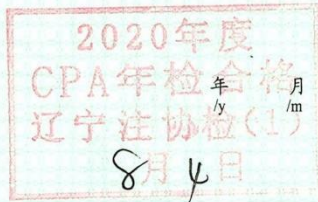 2020年度
CPA年检合格
年 月
/y /m
辽宁注协检(1)
8月4日